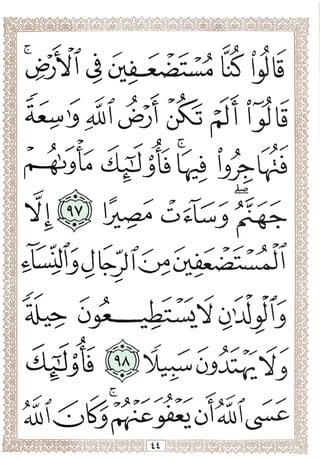 قَالُوا۟ كُنَّا مُسْتَضْعَفِينَ فِى ٱلْأَرْضِ ۚ
قَالُوٓا۟ أَلَمْ تَكُنْ أَرْضُ ٱللَّهِ وَٰسِعَةً
فَتُهَاجِرُوا۟ فِيهَا ۚ فَأُو۟لَٰٓئِكَ مَأْوَىٰهُمْ
جَهَنَّمُ ۖ وَسَآءَتْ مَصِيرًا ٩٧ إِلَّا
ٱلْمُسْتَضْعَفِينَ مِنَ ٱلرِّجَالِ وَٱلنِّسَآءِ
وَٱلْوِلْدَٰنِ لَا يَسْتَطِيعُونَ حِيلَةً
وَلَا يَهْتَدُونَ سَبِيلًا ٩٨ فَأُو۟لَٰٓئِكَ
عَسَى ٱللَّهُ أَن يَعْفُوَ عَنْهُمْ ۚ وَكَانَ ٱللَّهُ
٤٤